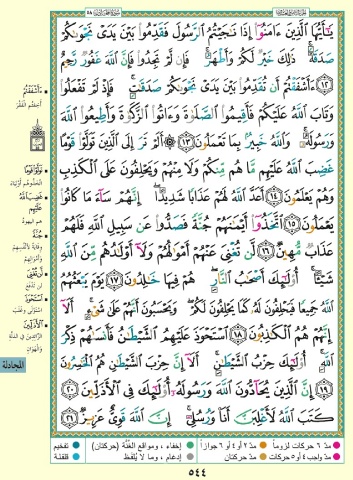 يَٰٓأَيُّهَا ٱلَّذِينَ ءَامَنُوٓا۟ إِذَا نَٰجَيْتُمُ ٱلرَّسُولَ فَقَدِّمُوا۟ بَيْنَ يَدَىْ نَجْوَىٰكُمْ
صَدَقَةً ۚ ذَٰلِكَ خَيْرٌ لَّكُمْ وَأَطْهَرُ ۚ فَإِن لَّمْ تَجِدُوا۟ فَإِنَّ ٱللَّهَ غَفُورٌ رَّحِيمٌ
١٢ ءَأَشْفَقْتُمْ أَن تُقَدِّمُوا۟ بَيْنَ يَدَىْ نَجْوَىٰكُمْ صَدَقَٰتٍ ۚ فَإِذْ لَمْ تَفْعَلُوا۟
وَتَابَ ٱللَّهُ عَلَيْكُمْ فَأَقِيمُوا۟ ٱلصَّلَوٰةَ وَءَاتُوا۟ ٱلزَّكَوٰةَ وَأَطِيعُوا۟ ٱللَّهَ
وَرَسُولَهُۥ ۚ وَٱللَّهُ خَبِيرٌۢ بِمَا تَعْمَلُونَ ١٣ ۞ أَلَمْ تَرَ إِلَى ٱلَّذِينَ تَوَلَّوْا۟ قَوْمًا
غَضِبَ ٱللَّهُ عَلَيْهِم مَّا هُم مِّنكُمْ وَلَا مِنْهُمْ وَيَحْلِفُونَ عَلَى ٱلْكَذِبِ
وَهُمْ يَعْلَمُونَ ١٤ أَعَدَّ ٱللَّهُ لَهُمْ عَذَابًا شَدِيدًا ۖ إِنَّهُمْ سَآءَ مَا كَانُوا۟
يَعْمَلُونَ ١٥ ٱتَّخَذُوٓا۟ أَيْمَٰنَهُمْ جُنَّةً فَصَدُّوا۟ عَن سَبِيلِ ٱللَّهِ فَلَهُمْ
عَذَابٌ مُّهِينٌ ١٦ لَّن تُغْنِىَ عَنْهُمْ أَمْوَٰلُهُمْ وَلَآ أَوْلَٰدُهُم مِّنَ ٱللَّهِ
شَيْـًٔا ۚ أُو۟لَٰٓئِكَ أَصْحَٰبُ ٱلنَّارِ ۖ هُمْ فِيهَا خَٰلِدُونَ ١٧ يَوْمَ يَبْعَثُهُمُ
ٱللَّهُ جَمِيعًا فَيَحْلِفُونَ لَهُۥ كَمَا يَحْلِفُونَ لَكُمْ ۖ وَيَحْسَبُونَ أَنَّهُمْ عَلَىٰ شَىْءٍ ۚ أَلَآ
إِنَّهُمْ هُمُ ٱلْكَٰذِبُونَ ١٨ ٱسْتَحْوَذَ عَلَيْهِمُ ٱلشَّيْطَٰنُ فَأَنسَىٰهُمْ ذِكْرَ
ٱللَّهِ ۚ أُو۟لَٰٓئِكَ حِزْبُ ٱلشَّيْطَٰنِ ۚ أَلَآ إِنَّ حِزْبَ ٱلشَّيْطَٰنِ هُمُ ٱلْخَٰسِرُونَ
١٩ إِنَّ ٱلَّذِينَ يُحَآدُّونَ ٱللَّهَ وَرَسُولَهُۥٓ أُو۟لَٰٓئِكَ فِى ٱلْأَذَلِّينَ ٢٠
كَتَبَ ٱللَّهُ لَأَغْلِبَنَّ أَنَا۠ وَرُسُلِىٓ ۚ إِنَّ ٱللَّهَ قَوِىٌّ عَزِيزٌ ٢١
ءَأَشْفَقْتُمْ
تَوَلَّوْا قَوْمًا
غَضِبَ اللَّهُ
عَلَيْهِم
جُنَّةً
لَن تُغْنِيَ
اسْتَحْوَذَ
الْأَذَلِّينَ
المجادلة
مدّ ٦ حركات لزوماً
مدّ ٢ أو ٤ أو ٦ جوازاً
إخفاء، ومواقع الغُنَّة (حركتان)
تفخيم
مدّ واجب ٤ أو ٥ حركات
مدّ حركتان
إدغام، وما لا يُلفظ
قلقلة
٥٤٤